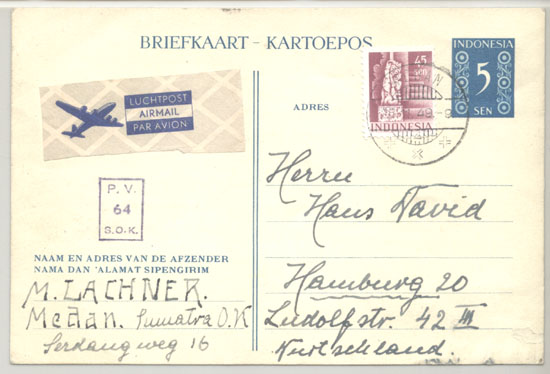 BRIEFKAART - KARTOEPOS
INDONESIA
5
SEN
45
SEN
INDONESIA
LUCHTPOST
AIRMAIL
PAR AVION
ADRES
P. V.
64
S.O.K.
Herrn
Hans David
Hamburg 20
Ludolfstr. 42 III
NAAM EN ADRES VAN DE AFZENDER
NAMA DAN 'ALAMAT SIPENGIRIM
M. LACHNER.
Medan. Sumatra O.K
Serdangweg 16